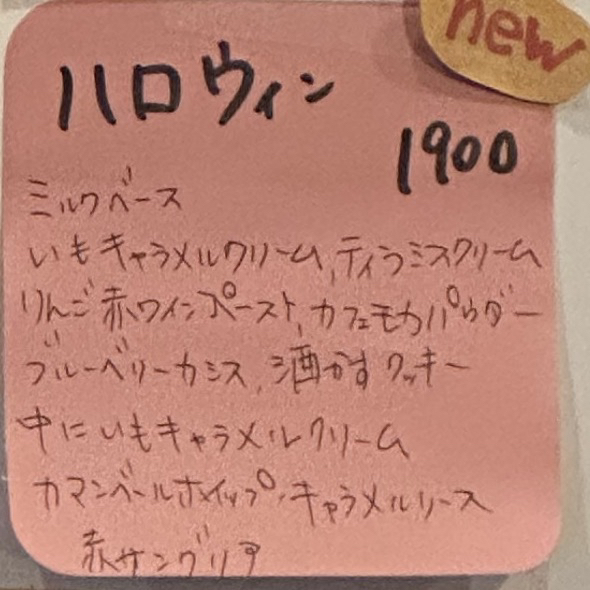 new
ハロウィン
1900
ミルクベース
いもキャラメルクリーム,ティラミスクリーム
りんご赤ワインペースト,カフェモカパウダー
ブルーベリーカシス,酒かすクッキー
中にいもキャラメルクリーム
カマンベールホイップ,キャラメルソース
赤サングリア